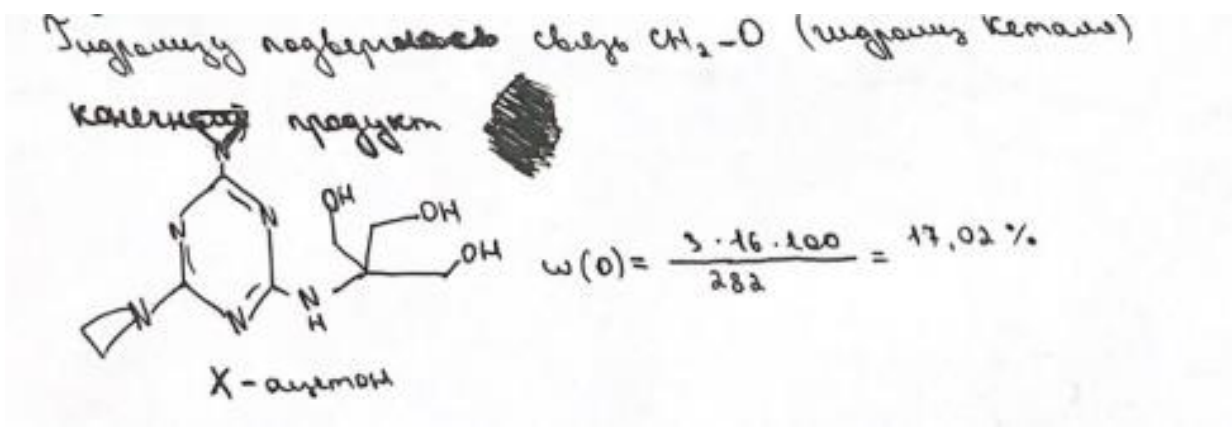 Гидролизу подверглась связь CH₂-O (гидролиз кеталя)
конечный продукт
N
OH
N N OH
OH
N N N
H
ω(O) = 3·16·100 / 282 = 17,02 %
X - ацетон